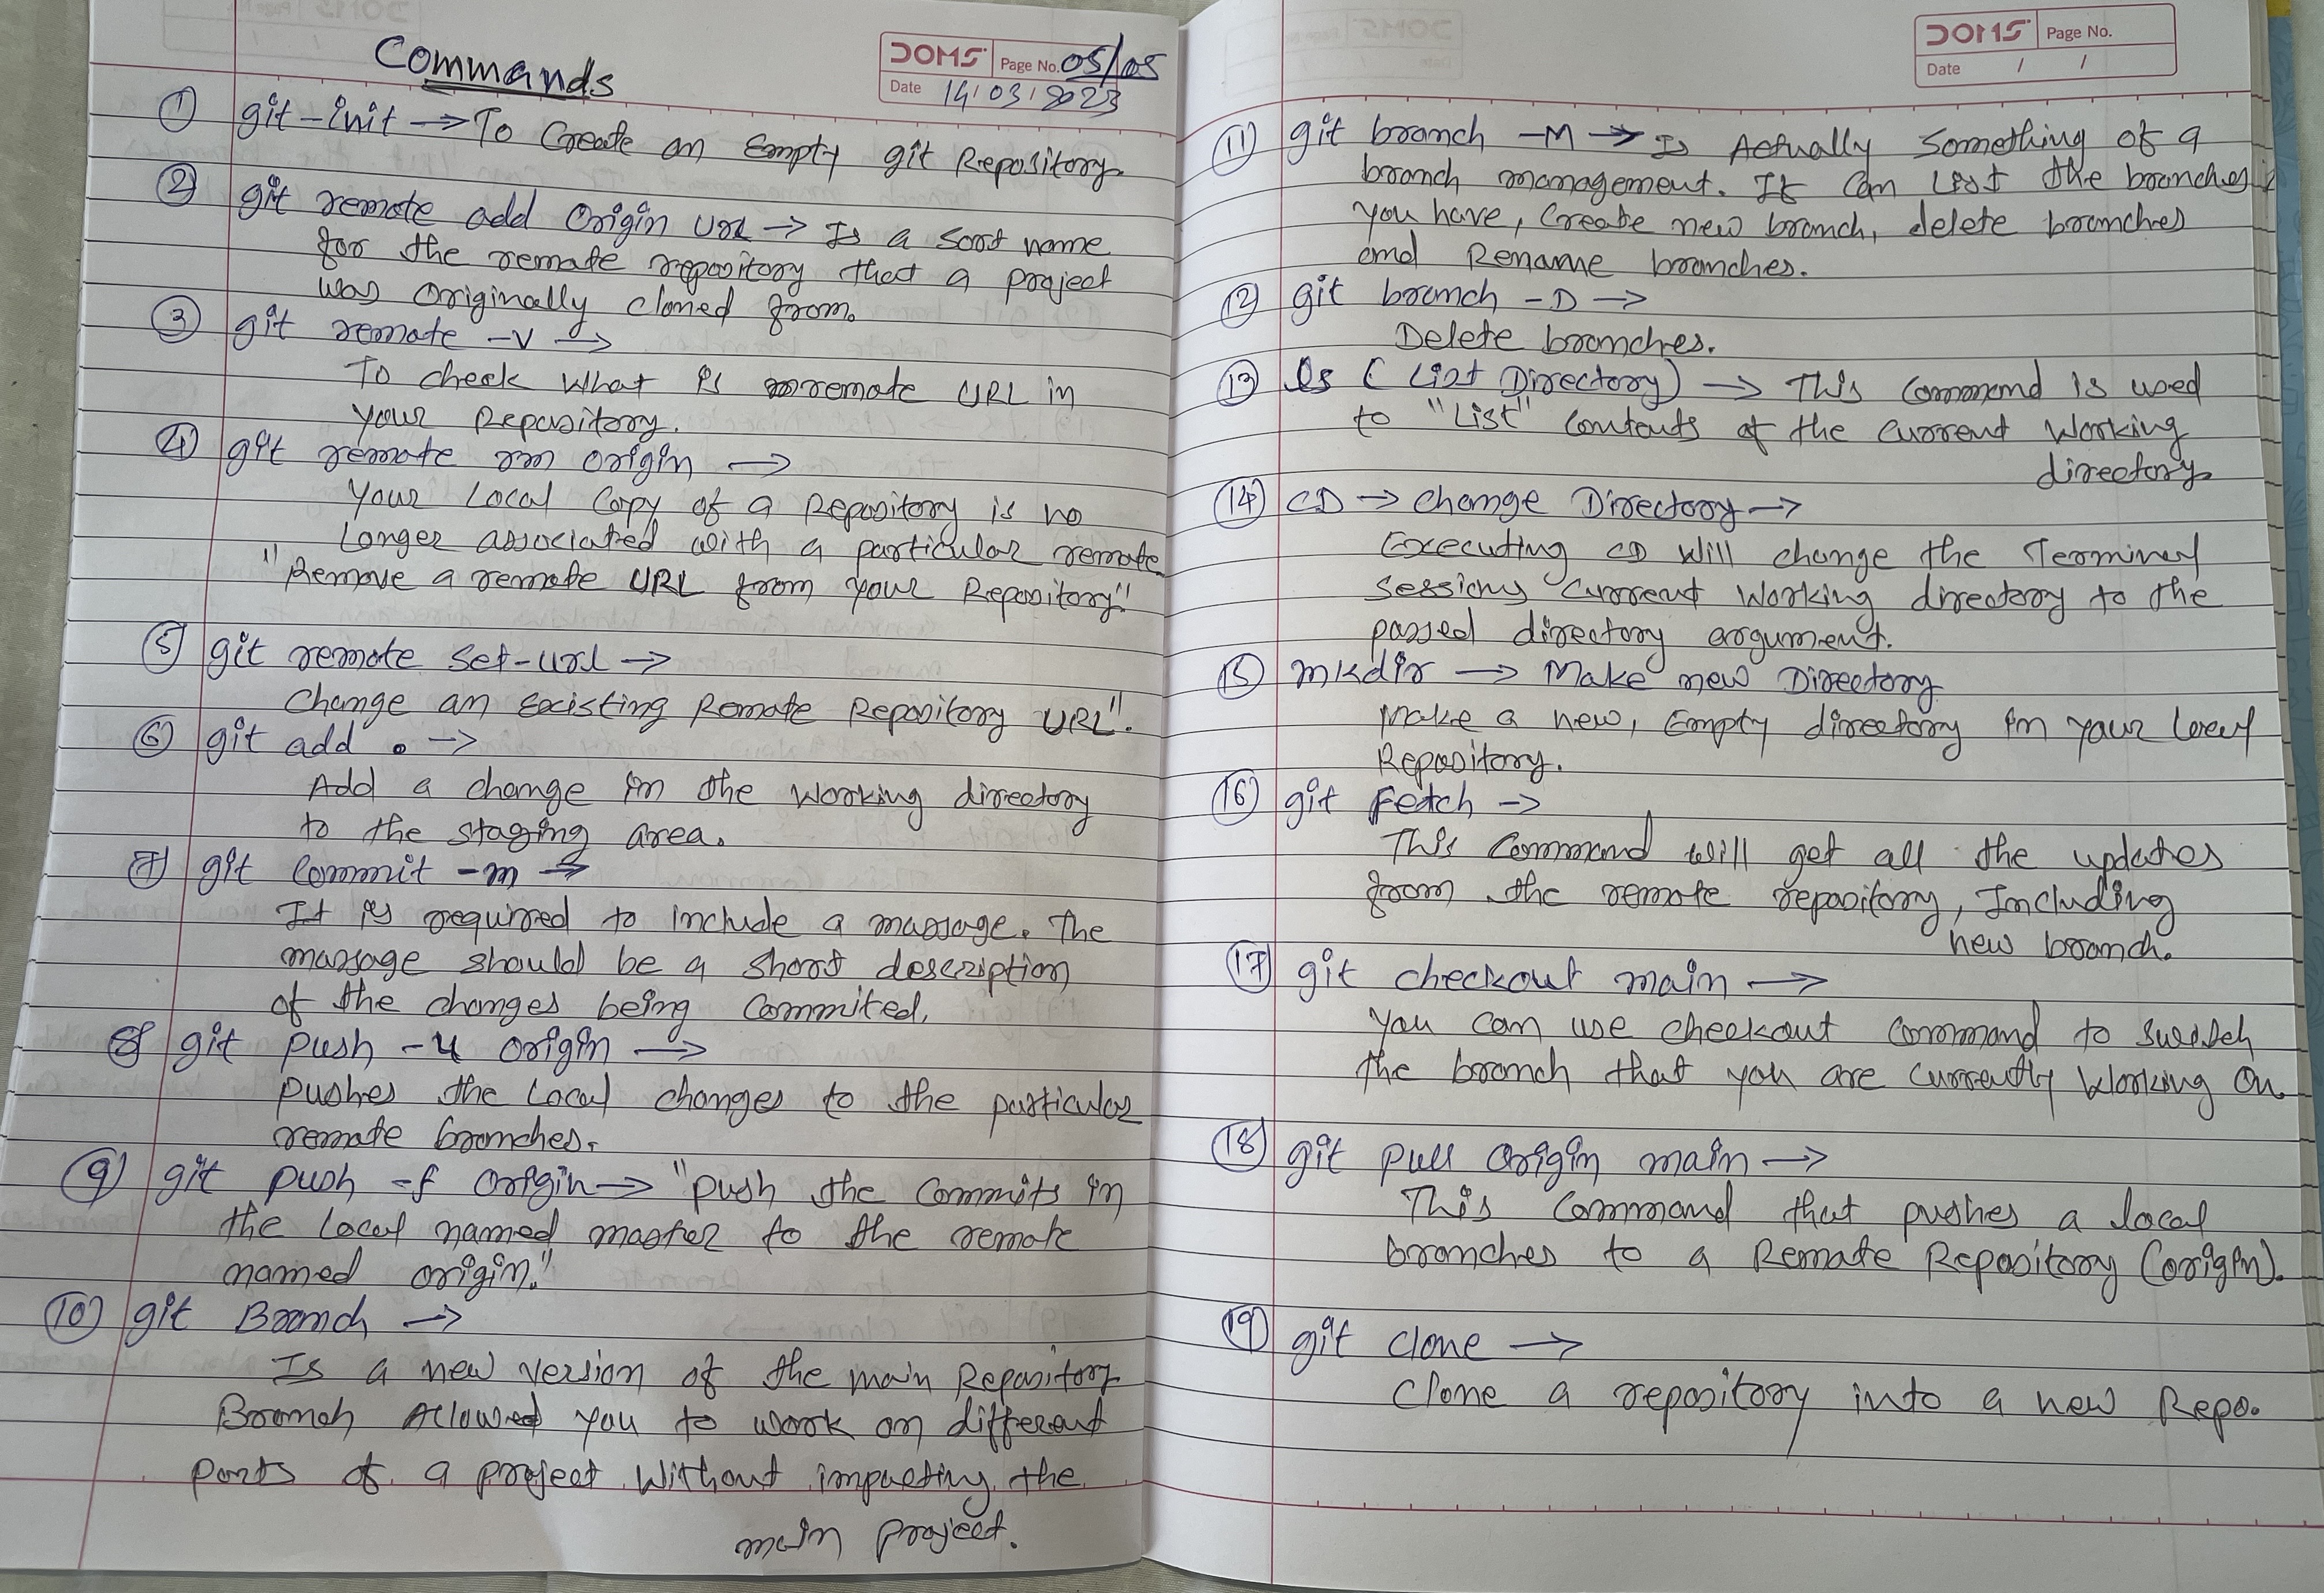 Commands
DOMS Page No. 05/05
Date 14/03/2023
① git-init → To Create an Empty git Repository.
② git remote add Origin URL → Is a Sort name
for the remote repository that a project
was originally cloned from.
③ git remote -V →
To check what is remote URL in
your Repository.
④ git remote rm origin →
Your Local Copy of a Repository is no
Longer associated with a particular remote
"Remove a remote URL from your Repository"
⑤ git remote set-url →
Change an Existing Remote Repository URL".
⑥ git add . →
Add a change in the working directory
to the staging area.
⑦ git commit -m →
It is required to include a massage. The
massage should be a short description
of the changes being Commited.
⑧ git push -u origin →
pushes the Local changes to the particular
remote branches.
⑨ git push -f origin → "push the Commits in
the local named master to the remote
named origin."
⑩ git Branch →
Is a new version of the main Repository
Branch Allowed you to work on different
parts of a project without impacting the
main project.
DOMS Page No.
Date / /
⑪ git branch -M → Is Actually Something of a
branch management. It Can List the branches
you have, Create new branch, delete branches
and Rename branches.
⑫ git branch -D →
Delete branches.
⑬ ls (List Directory) → This Command is used
to "List" Contents of the Current Working
directory.
⑭ CD → Change Directory →
Executing CD will change the Terminal
Sessions Current Working directory to the
passed directory argument.
⑮ mkdir → Make new Directory
Make a new, Empty directory in your local
Repository.
⑯ git Fetch →
This Command will get all the updates
from the remote repository, Including
new branch.
⑰ git checkout main →
You can use checkout Command to Switch
the branch that you are currently Working On.
⑱ git pull origin main →
This Command that pushes a local
branches to a Remote Repository (origin).
⑲ git clone →
Clone a repository into a new Repo.